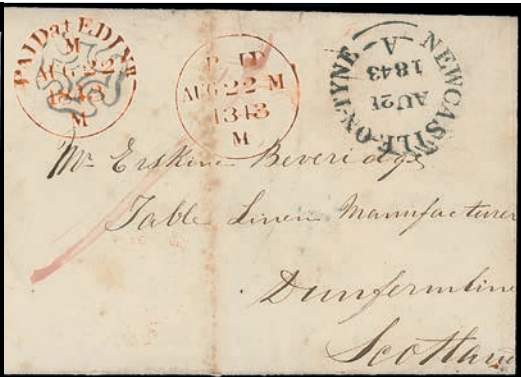 PAID at EDINR
M
AUG 22
1843
M
PAID
AUG 22 M
1843
M
NEWCASTLE-ON-TYNE
A
1843
AU 21
Mr Erskine Beveridge
Table Linen Manufacturer
Dunfermline
Scotland